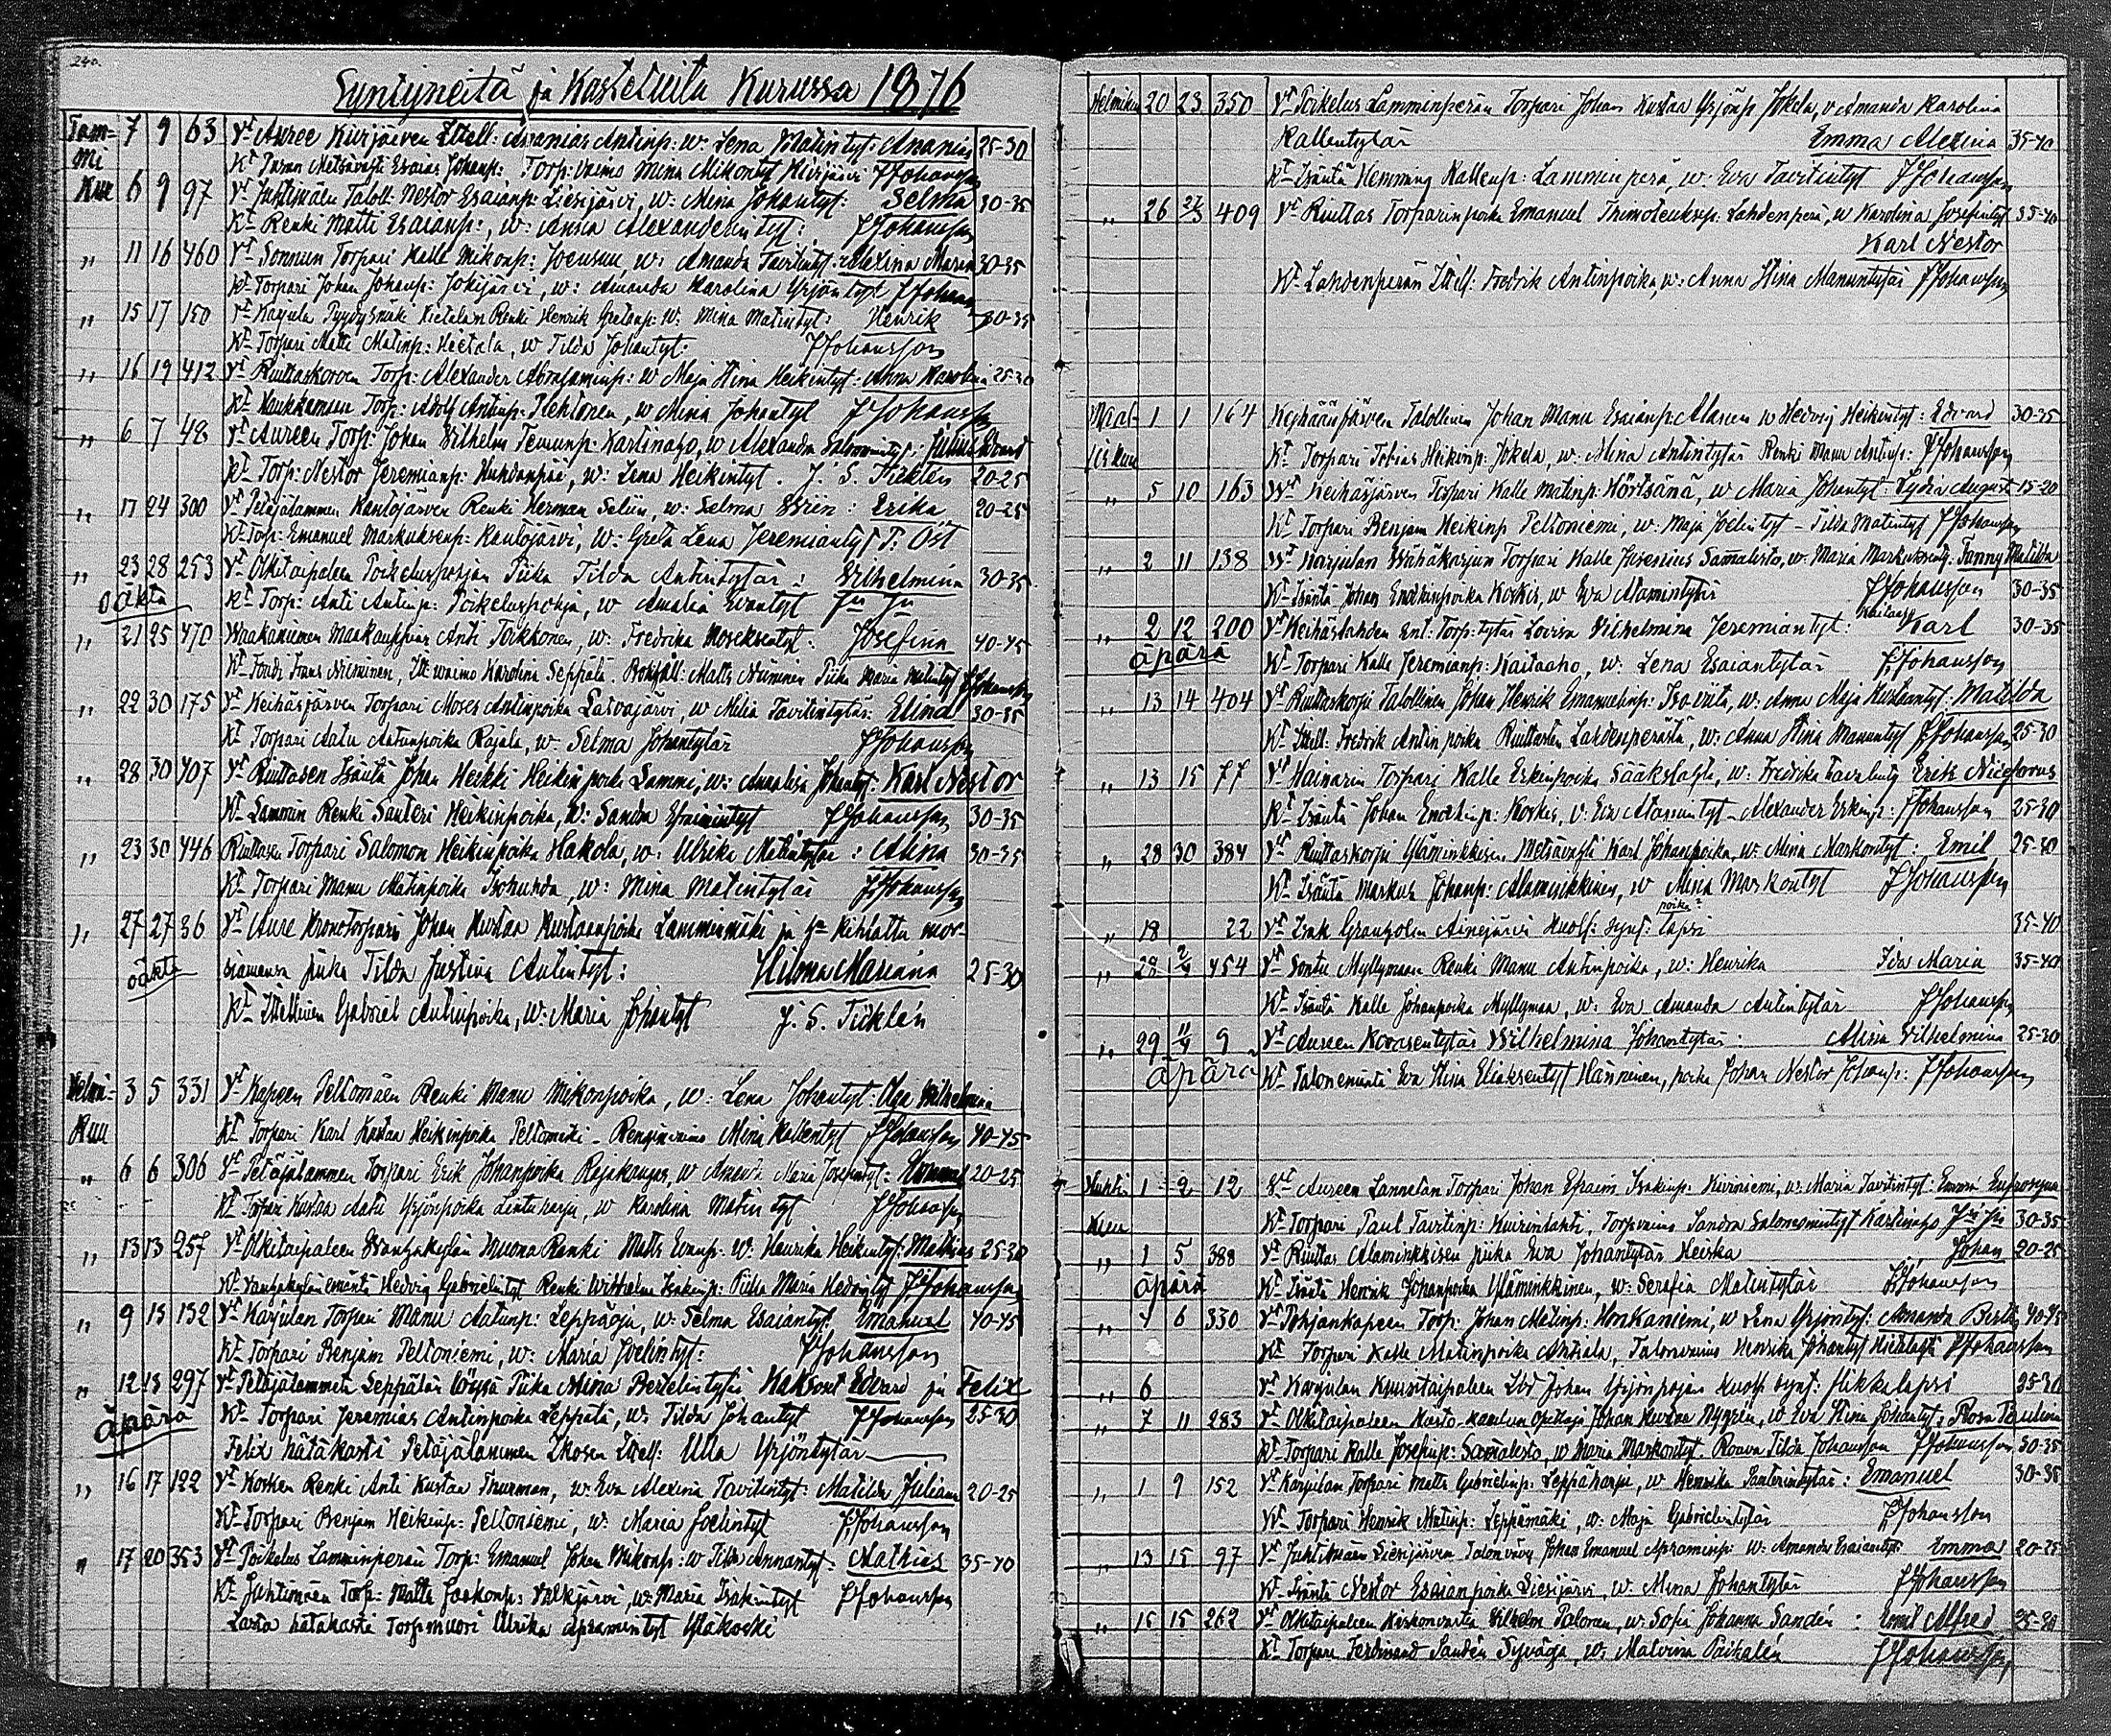 240.
Syntyneitä ja Kastetuita Kurussa 1876
Tam- 7 9 63 Vt Auree Kirjäiven Itsell: Ananias Antinp: w. Lena Matintyt: Ananias 25-30
mi Kt Esaias Johanp: Torp: vaimo Mina Mikontyt JJohansson
Kuu 6 9 97 Vt Juhtimäen Taloll: Nestor Esaianp: Liesijärvi, w: Mina Johantyt: Selma 30-35
Kt Renki Matti Esaianp:, w: Anna Alexanderintyt: JJohansson
" 11 16 460 Vt Torpari Kalle Mikonp: w: Amanda Tavitintyt: Alexina Maria 30-35
Kt Torpari Johan Johanp: Jokijärvi, w: Amanda Karolina Yrjöntyt JJohansson
" 15 17 150 Vt Karjula Hietalan Renki Henrik w: Mina Matintyt: Henrik 30-35
Kt Torpari Matti Matinp: Hietala, w Tilda Johantyt: JJohansson
" 16 19 412 Vt Riuttaskorven Torp: Alexander Abrahaminp: w Maja Stina Heikintyt: Anna Karolina 25-30
Kt Torp: Adolf Antinp: Lehtonen, w Mina Johantyt JJohansson
" 6 7 48 Vt Aureen Torp: Johan Vilhelm Kartinaho, w Alexandra Salomonintyt: Julius Edvard
Kt Torp: Nestor Jeremianp: w: Lena Heikintyt. J. S. Ticklén 20-25
" 17 24 300 Vt Petäjälammen Kantojärven Renki Herman Selin, w: Selma : Erika 20-25
Kt Torp: Emanuel Markuksenp: Kantojärvi, w: Greta Lena Jeremiantyt T. Öst
" 23 28 253 Vt Olkitaipaleen Poikeluspohjan Piika Tilda Antintytär: Vilhelmina 30-35
oäkta Kt Torp: Anti Antinp: Poikeluspohja, w Amalia Evantyt
" 21 25 470 Anti Toikkonen, w: Fredrika Moseksentyt: Josefina 40-45
Kt Frans Nieminen, Itll: waimo Karolina Seppälä. Matts Nieminen Piika Maria Matintyt JJohansson
" 22 30 175 Vt Keihäsjärven Torpari Moses Antinpoika Latvajärvi, w Milia Tavitintytär: Elina 30-35
Kt Torpari Aatu Antinpoika Rajala, w: Selma Johantytär JJohansson
" 28 30 407 Vt Riuttasen Isäntä Johan Heikki Heikinpoika Lammi, w: Annaliisa Johantyt: Karl Nestor
Kt Lammin Renki Santeri Heikinpoika, w: Sandra Efraimintyt JJohansson 30-35
" 23 30 446 Riuttasen Torpari Salomon Heikinpoika Hakola, w: Ulrika Matintytär: Alina 30-35
Kt Torpari Manu Matinpoika w: Mina Matintytär JJohansson
" 27 27 36 Vt Aure Kronotorpari Johan Kustaa Kustaanpoika Lamminmäki ja hän kihlattu mor-
oäkta siamensa piika Tilda Justina Antintyt: Hilma Mariana 25-30
Kt Itsellinen Gabriel Antinpoika, w: Maria Johantyt J. S. Ticklén
Helmi- 3 5 331 Vt Kapeen Peltomäen Renki Manu Mikonpoika, w: Lena Johantyt: Olga Wilhelmina
Kuu Kt Torpari Karl Kustaa Heikinpoika Peltomäki - Renginvaimo Mina Kallentyt JJohansson 40-45
" 6 6 306 Vt Petäjälammen Torpari Erik Johanpoika Rajakangas, w Amanda Maria Josefintyt: 20-25
Kt Torpari Kustaa Aatu Yrjönpoika Linturanju, w Karolina Matintyt JJohansson
" 13 13 257 Vt Olkitaipaleen Vanhakylän Muona Renki Matts w: Henrika Heikintyt: Mathias 25-30
Kt Vanhakylän emäntä Hedvig Gabrielintyt Renki Wilhelm Isakinp: Piika Maria JJohansson
" 9 13 132 Vt Karjulan Torpari Manu Aatunp: Leppäoja, w: Selma Esaiantyt: Emanuel 40-45
Kt Torpari Benjam Peltoniemi, w: Maria Joelintyt: JJohansson
" 12 13 297 Vt Petäjälammen Seppälän löysä Piika Mina Bertelintytär Kaksoset Edvard ja Felix
äpärä Kt Torpari Jeremias Antinpoika Seppälä, w: Tilda Johantyt JJohansson 25-30
Felix hätäkasti Petäjälammen Ikosen Itsell: Ulla Yrjöntytär
" 16 17 122 Vt Kosken Renki Anti Kustaa Thurman, w: Eva Alexina Tavitintyt: Matilda Juliana 20-25
Kt Torpari Benjam Heikinp: Peltoniemi, w: Maria Joelintyt JJohansson
" 17 20 353 Vt Poikelus Lamminperän Torp: Emanuel Johan Mikonp: w Tilda Annantyt: Mathias 35-40
Kt Juhtimäen Torp: Matti Jaakonp: Valkjärvi, w: Maria Isakintyt JJohansson
Lasta hätäkasti Torp: muori Ulrika Apramintyt Yläkoski
Helmikuu 20 23 350 Vt Poikelus Lamminperän Torpari Johan Kustaa Yrjönp: Jokela, w Amanda Karolina
Kallentytär Emma Alexina 35-40
Kt Isäntä Hemming Kallenp: Lamminperä, w: Eva Tavitintyt JJohansson
" 26 2/3 409 Vt Riuttas Torparinpoika Emanuel Thimoteuksp: Lahdenperä, w Karolina Josefintyt 35-40
Karl Nestor
Kt Lahdenperän Itsell: Fredrik Antinpoika, w: Anna Stina Manuntytär JJohansson
Maal- 1 1 164 Keihäsjärven Talollinen Johan Manu Esaianp: Alanen w Hedvig Heikintyt: Edvard 30-35
liskuu Kt Torpari Tobias Heikinp: Jokela, w: Mina Antintytär Renki Manu Antinp: JJohansson
" 5 10 163 Vt Keihäsjärven Torpari Kalle Matinp: Hörtsänä, w Maria Johantyt: Lydia August 15-20
Kt Torpari Benjam Heikinp Peltoniemi, w: Maja Joelintyt - Tilda Matintyt JJohansson
" 2 11 138 Vt Karjulan Vähäkarjun Torpari Kalle Samalisto, w: Maria Markuksentyt: Fanny Matilda
Kt Isäntä Johan Enokinpoika Koskis, w Eva Adamintytär JJohansson 30-35
" 2 12 200 Vt Keihäslahden Ent: Torp: tytär Lovisa Vilhelmina Jeremiantyt: Karl 30-35
äpärä Kt Torpari Kalle Jeremianp: Kaitaaho, w: Lena Esaiantytär JJohansson
" 13 14 404 Vt Riuttaskorpi Talollinen Johan Henrik Emanuelinp: w: Anna Maja Kustaantyt: Matilda
Kt Itsell: Fredrik Antinpoika Riuttasen Lahdenperästä, w: Anna Stina Manuntyt JJohansson 25-30
" 13 15 77 Vt Hainarin Torpari Kalle Erkinpoika Sääkslahti, w: Fredrika Erik Nicoforus
Kt Isäntä Johan Enokinp: Koskis, w: Eva Adamintyt - Alexander Erkinp: JJohansson 25-30
" 28 30 384 Vt Riuttaskorpi Yläminkkisen Metsävahti Karl Johanpoika, w: Mina Markontyt: Emil 25-30
Kt Isäntä Markus Johanp: Alaminkkinen, w Mina Markontyt JJohansson
poika?
" 18 22 Vt Isak Granholm Ainejärvi Kuoll: synt: lapsi 35-40
" 28 2/4 454 Vt Sontu Myllymaan Renki Manu Antinpoika, w: Henrika Ida Maria 35-40
Kt Isäntä Kalle Johanpoika Myllymaa, w: Eva Amanda Antintytär JJohansson
" 29 11/4 9 Vt Aureen Kovasentytär Wilhelmina Johantytär: Alina Vilhelmina 25-30
äpärä Kt Talonemäntä Eva Stina Eliaksentyt Hänninen, poika Johan Nestor Johanp: JJohansson
Huhti- 1 2 12 Vt Aureen Lannetan Torpari Johan Efraim Isakinp: Kivirniemi, w: Maria Tavitintyt: Emma Eufrosyna
Kuu Kt Torpari Paul Tavitinp: Torp: vaimo Sandra Salomonintyt Kartinaho 30-35
" 1 5 388 Vt Riuttas Alaminkkisen piika Eva Johantytär Heiska Johan 20-25
äpärä Kt Isäntä Henrik Johanpoika Yläminkkinen, w: Serafia Matintytär JJohansson
" 4 6 330 Vt Pohjankapeen Torp: Johan Matinp: Honkaniemi, w Lena Yrjöntyt: Amanda Berta 40-45
Kt Torpari Kalle Matinpoika Antiala, Talonvaimo Henrika Johantyt Hietalahti JJohansson
" 6 Vt Karjulan Kuusitaipaleen Johan Yrjönpojan Kuoll: synt: flikkalapsi 25-30
" 7 11 283 Vt Olkitaipaleen Kierto-koulun Opettaja Johan Kustaa Nygrén, w Eva Stina Johantyt: Rosa Paulina
Kt Torpari Kalle Josefinp: Samalisto, w Maria Markontyt. Rouva Tilda Johansson JJohansson 30-35
" 1 9 152 Vt Karjulan Torpari Matts Gabrielinp: Leppäharju, w Henrika Santerintytär: Emanuel 30-35
Kt Torpari Henrik Matinp: Leppämäki, w: Maja Gabrielintytär JJohansson
" 13 15 97 Vt Juhtimäen Liesijärven Talonvävy Johan Emanuel Apraminp: w: Amanda Esaiantyt: Emma 20-25
Kt Isäntä Nestor Esaianpoika Liesijärvi, w: Mina Johantytär JJohansson
" 15 15 262 Vt Olkitaipaleen Kirkonvartia Vilhelm Palonen, w: Sofia Johanna Sandén: Emil Alfred 25-30
Kt Torpari Ferdinand Sandén Syväoja, w: Malvina Paikalén JJohansson